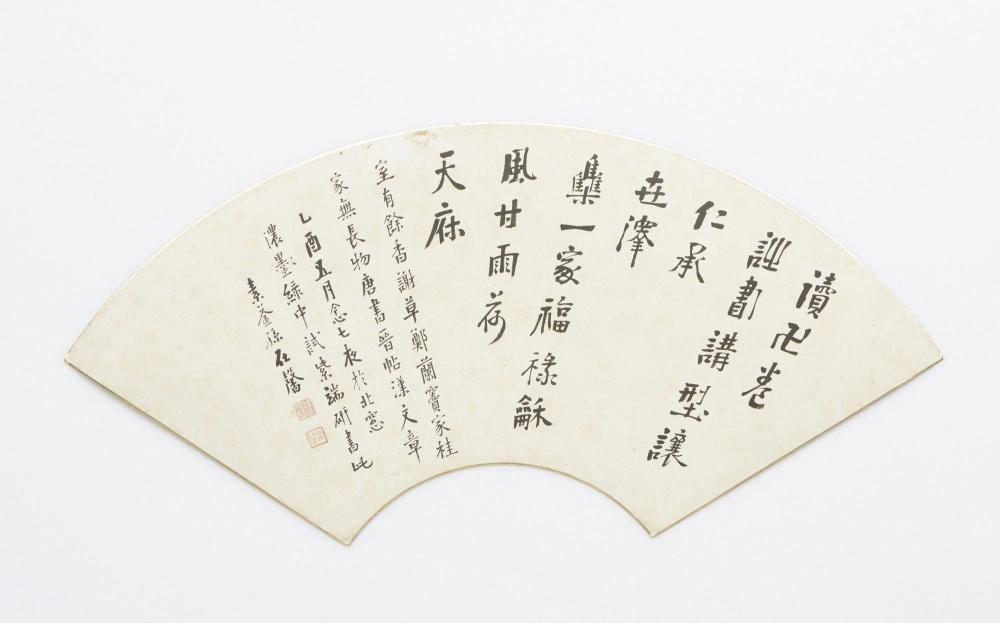 讀卍卷
詩書講型讓
仁承
世澤
雧一家福祿龢
風甘雨荷
天庥
室有餘香謝草鄭蘭竇家桂
家無長物唐書晉帖漢文章
乙酉五月念七夜於北窓
濃影綠中試紫端研書此
馨